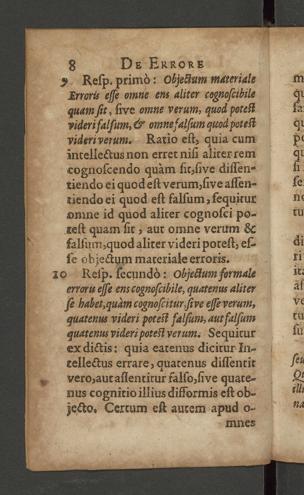 8 DE ERRORE
9 Resp. primò: Objectum materiale
Erroris esse omne ens aliter cognoscibile
quam sit, sive omne verum, quod potest
videri falsum, & omne falsum quod potest
videri verum. Ratio est, quia cum
intellectus non erret nisi aliter rem
cognoscendo quàm sit, sive dissen-
tiendo ei quod est verum, sive assen-
tiendo ei quod est falsum, sequitur
omne id quod aliter cognosci po-
test quam sit, aut omne verum &
falsum, quod aliter videri potest, es-
se objectum materiale erroris.
10 Resp. secundò: Objectum formale
erroris esse ens cognoscibile, quatenus aliter
se habet, quàm cognoscitur, sive esse verum,
quatenus videri potest falsum, aut falsum
quatenus videri potest verum. Sequitur
ex dictis: quia eatenus dicitur In-
tellectus errare, quatenus dissentit
vero, aut assentitur falso, sive quate-
nus cognitio illius difformis est ob-
jecto. Certum est autem apud o-
mnes